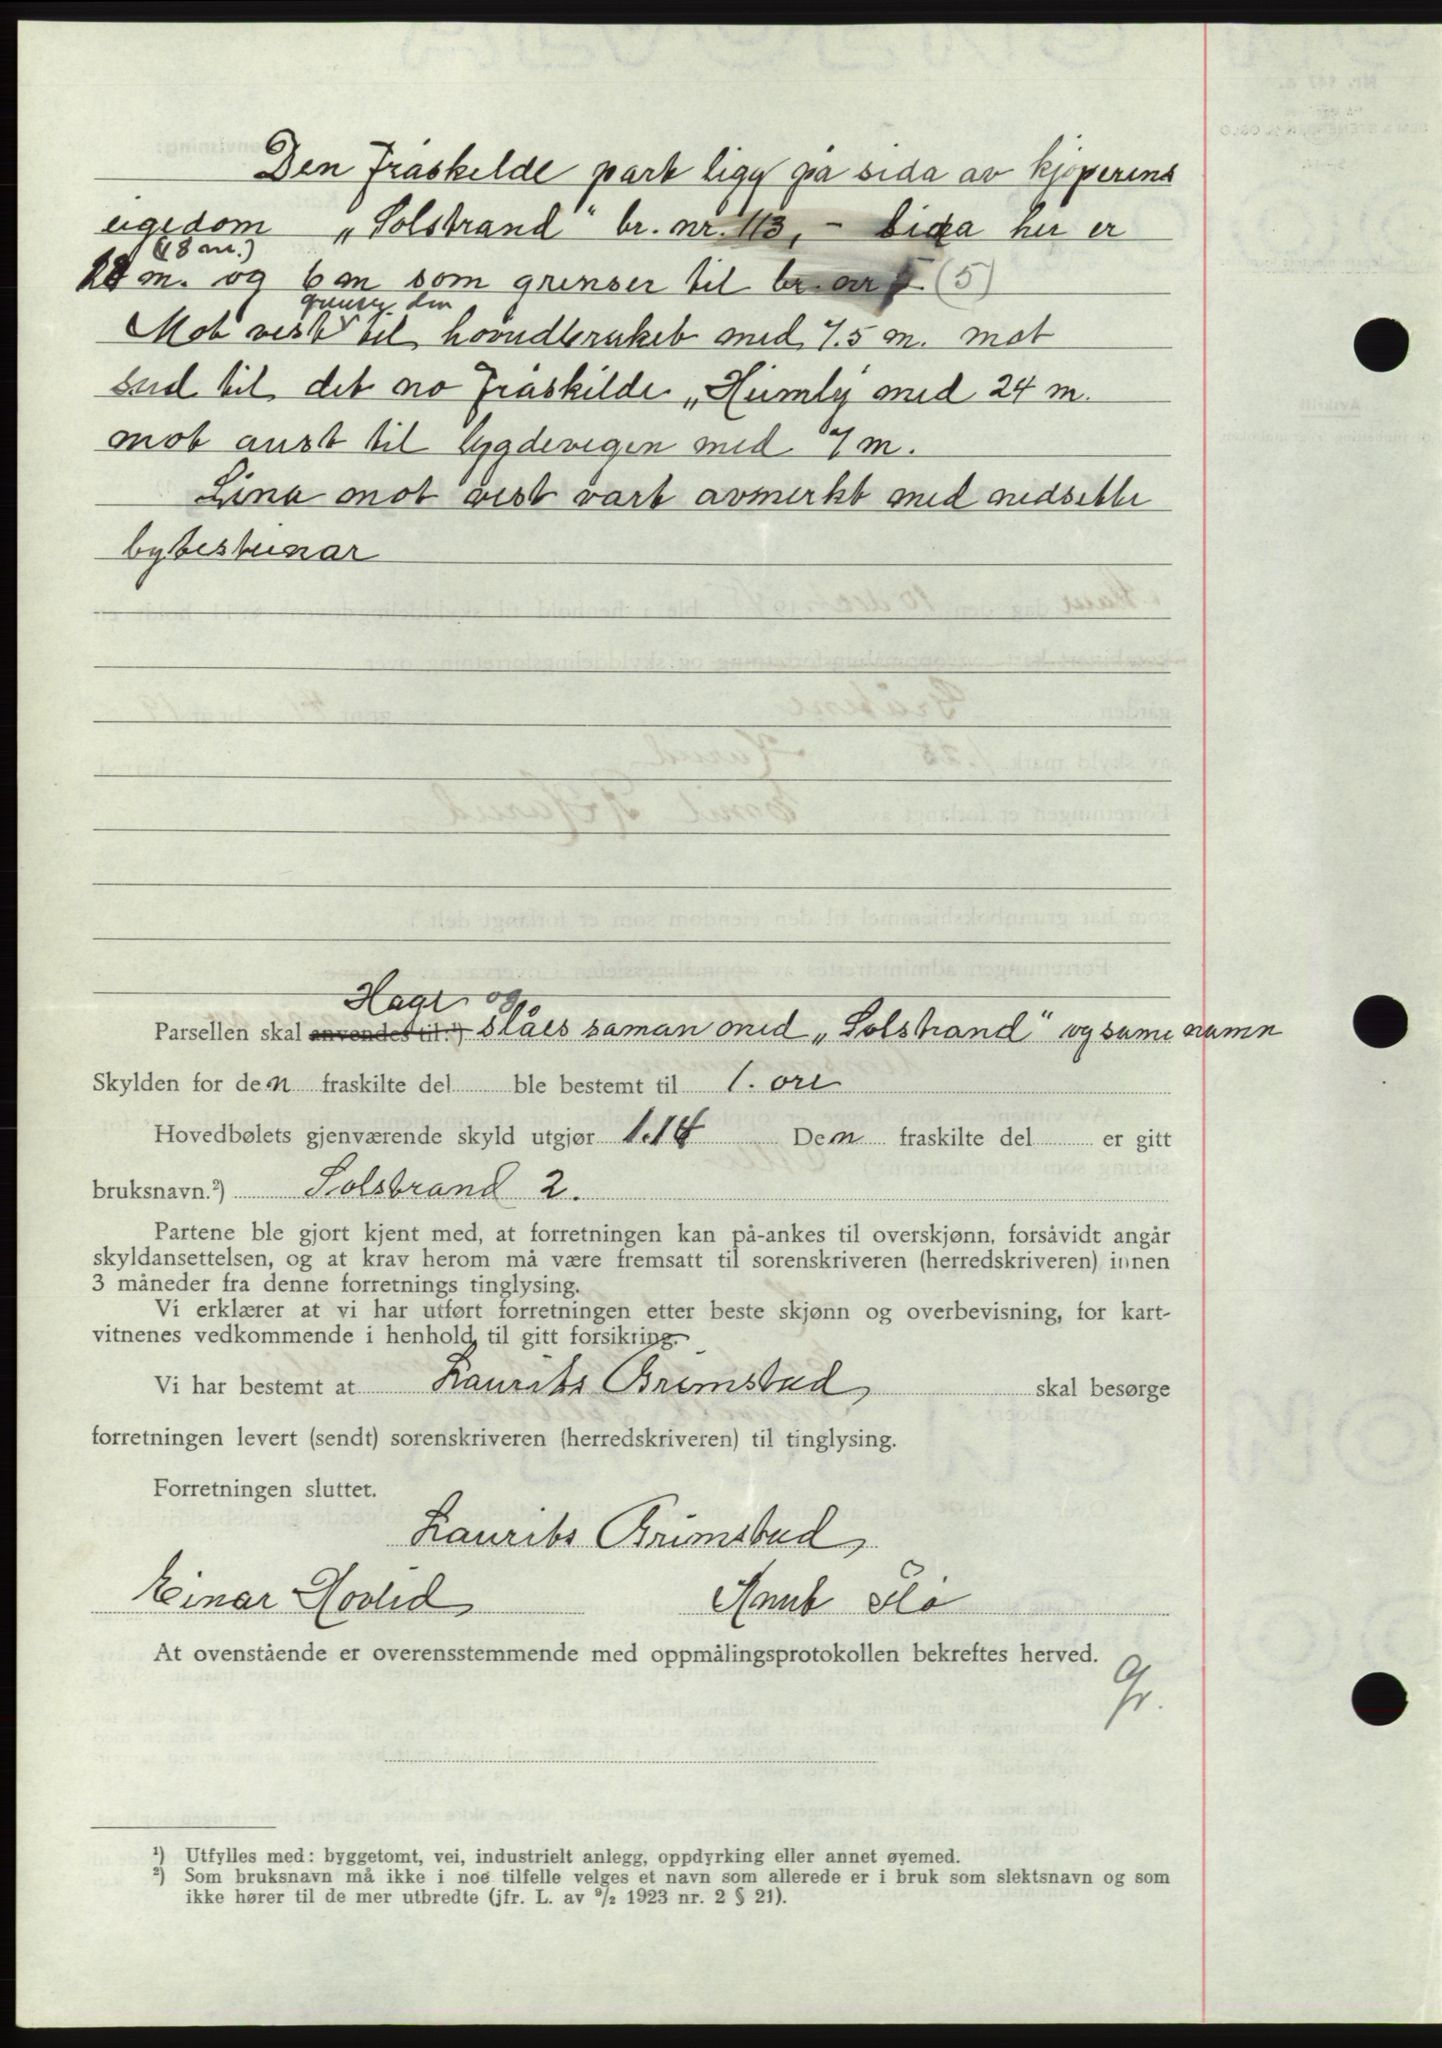 Den fråskelde part ligg på sida av kjøperens
eigedom „Solstrand" br. nr. 113, - Sida her er
(18 m.)
18 m. og 6 m som grenser til br. nr 5. (5)
grensar den
Mot vest til hovudbruket med 7.5 m. mot
sud til det no fråskilde „Heimly" med 24 m.
mot aust til bygdevegen med 7 m.
Lina mot vest vart avmerkt med nedsette
bytesteinar
Hage og
Parsellen skal anvendes til:¹) slåes saman med „Solstrand" og same namn
Skylden for den fraskilte del ble bestemt til 1. øre
Hovedbølets gjenværende skyld utgjør 1.14 Den fraskilte del er gitt
bruksnavn.²) Solstrand 2.
Partene ble gjort kjent med, at forretningen kan på-ankes til overskjønn, forsåvidt angår
skyldansettelsen, og at krav herom må være fremsatt til sorenskriveren (herredskriveren) innen
3 måneder fra denne forretnings tinglysing.
Vi erklærer at vi har utført forretningen etter beste skjønn og overbevisning, for kart-
vitnenes vedkommende i henhold til gitt forsikring.
Vi har bestemt at Laurits Grimstad skal besørge
forretningen levert (sendt) sorenskriveren (herredskriveren) til tinglysing.
Forretningen sluttet.
Laurits Grimstad
Einar Hovlid Knut Flø
At ovenstående er overensstemmende med oppmålingsprotokollen bekreftes herved.
Gr.
¹) Utfylles med: byggetomt, vei, industrielt anlegg, oppdyrking eller annet øyemed.
²) Som bruksnavn må ikke i noe tilfelle velges et navn som allerede er i bruk som slektsnavn og som
ikke hører til de mer utbredte (jfr. L. av ⁹/₂ 1923 nr. 2 § 21).